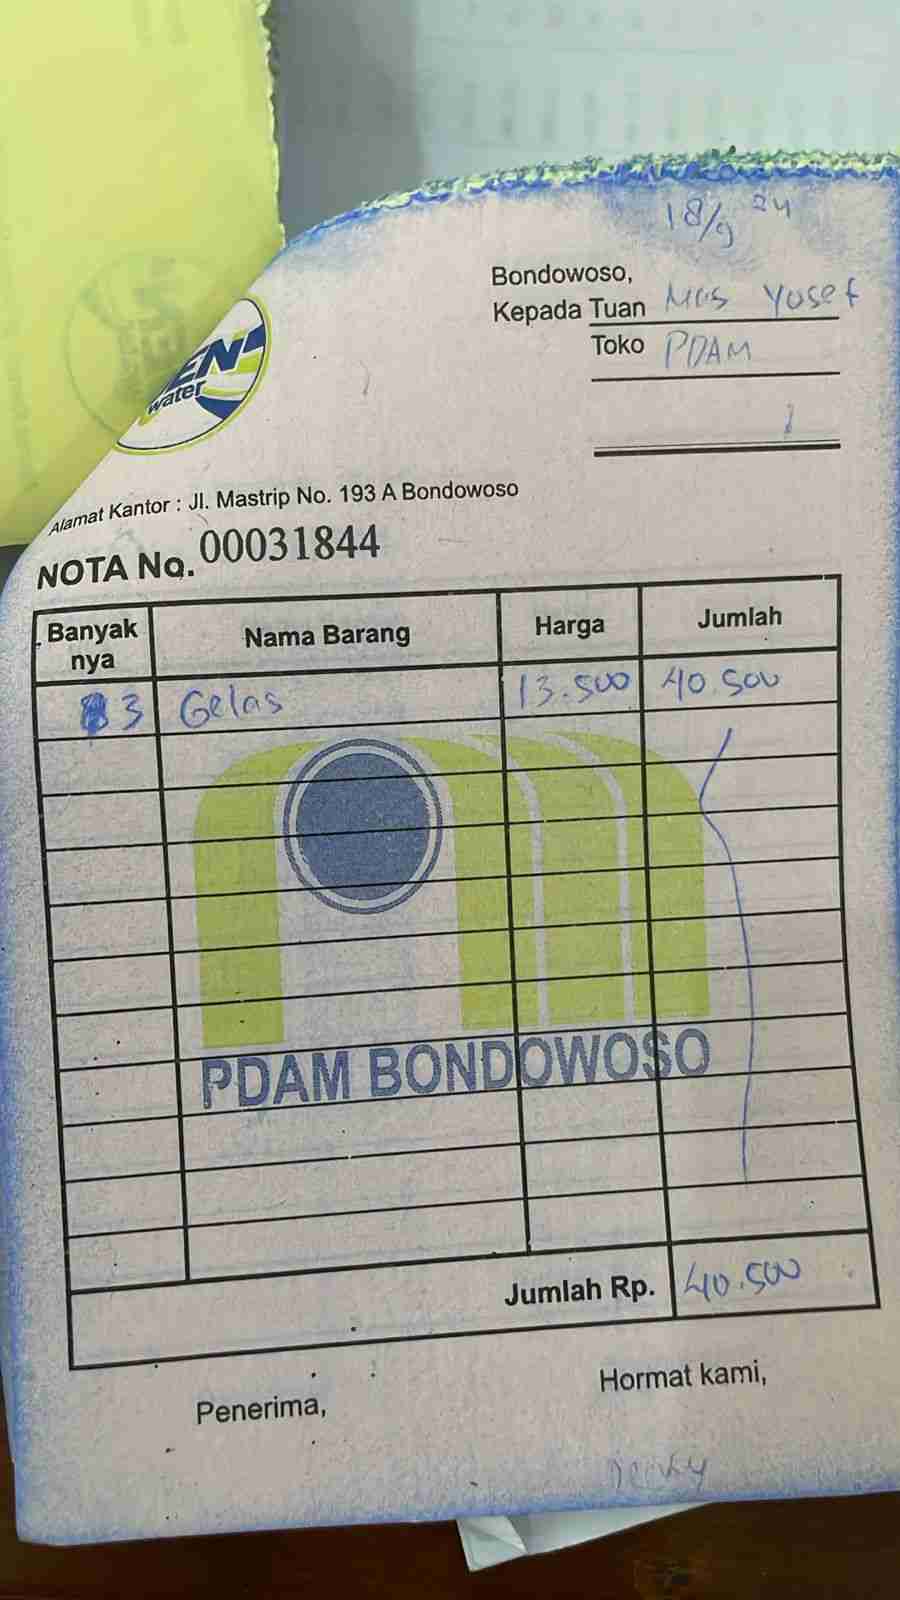 18/9 24
Bondowoso,
Kepada Tuan Mas Yosef
Toko PDAM
water
Alamat Kantor : Jl. Mastrip No. 193 A Bondowoso
NOTA No. 00031844
Banyak nya Nama Barang Harga Jumlah
3 Gelas 13.500 40.500
PDAM BONDOWOSO
Jumlah Rp. 40.500
Penerima, Hormat kami,